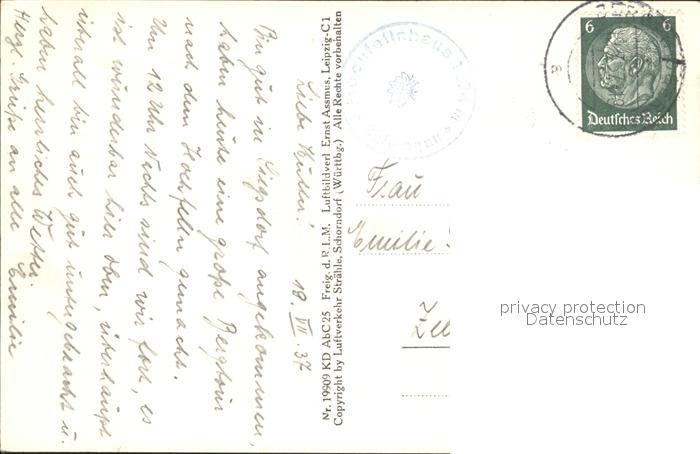 Liebe Mutter! 18. VII. 37
Bin gut in Siegsdorf angekommen,
haben heute eine große Bergtour
nach dem Hochfelln gemacht.
Um 12 Uhr Nachts sind wir fort, es
ist wunderbar hier oben, überhaupt
überall bin auch gut untergebracht u.
haben herrliches Wetter.
Herzl. Grüße an alle Emilie
Nr. 19909 KD AbC25 Freig. d. R.L.M. Luftbildverl Ernst Assmus, Leipzig-C1
Copyright by Luftverkehr Strähle, Schorndorf (Württbg.) Alle Rechte vorbehalten
Hochfellnhaus
6 6
Deutsches Reich
Frau
Emilie
privacy protection
Datenschutz